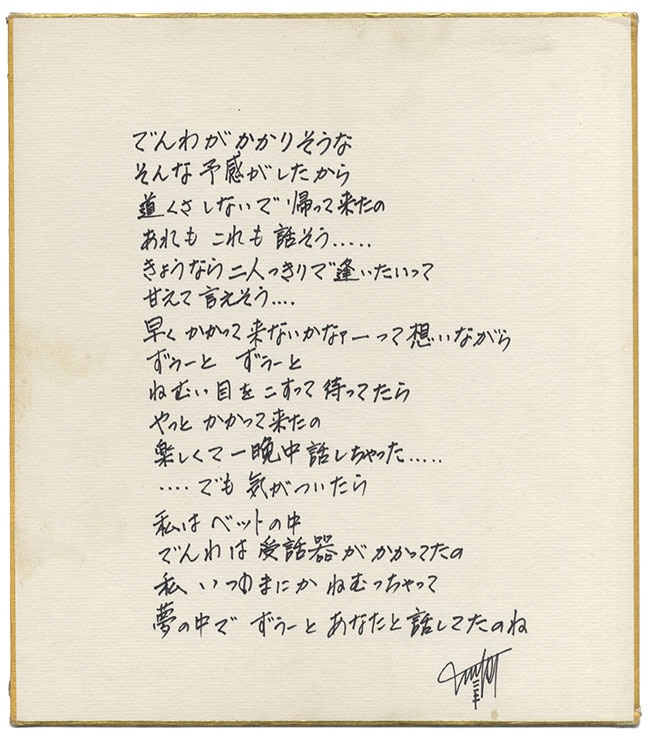 でんわがかかりそうな
そんな予感がしたから
道くさしないで帰って来たの
あれもこれも話そう.....
きょうなら二人っきりで逢いたいって
甘えて言えそう....
早くかかって来ないかなァーって想いながら
ずぅーと ずぅーと
ねむい目をこすって待ってたら
やっとかかって来たの
楽しくて一晩中話しちゃった.....
....でも気がついたら
私はベットの中
でんわは受話器がかかってたの
私いつのまにかねむっちゃって
夢の中でずぅーとあなたと話してたのね